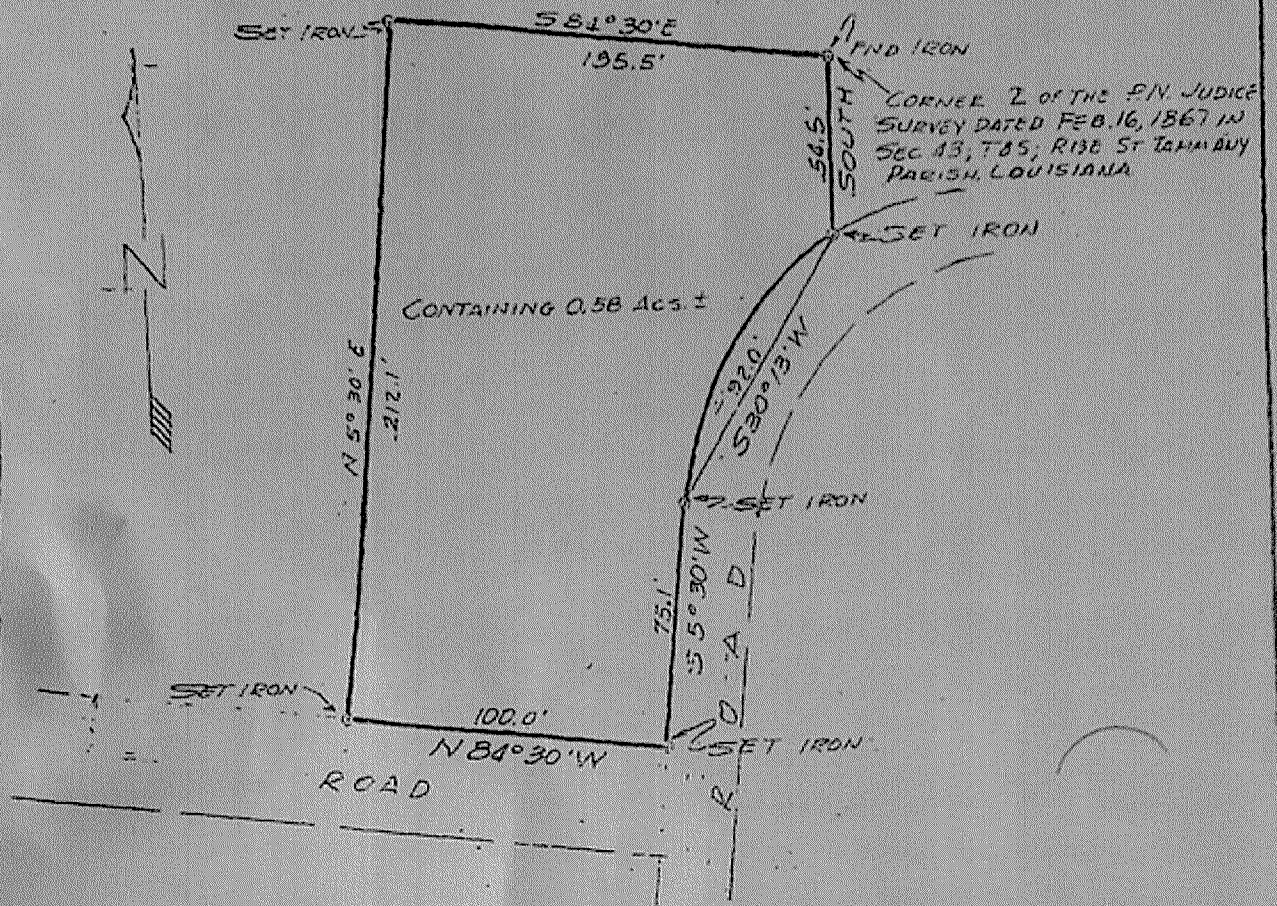 SET IRON
S 84°30'E
195.5'
FND IRON
CORNER 2 OF THE P.N. JUDICE
SURVEY DATED FEB. 16, 1867 IN
SEC 43, T8S, R13E ST TAMMANY
PARISH, LOUISIANA
56.5'
SOUTH
SET IRON
CONTAINING 0.58 ACS. ±
92.0'
S30°13'W
N 5°30' E
212.1'
SET IRON
75.1'
S 5°30'W
SET IRON
100.0'
N 84°30'W
SET IRON
ROAD
ROAD
N